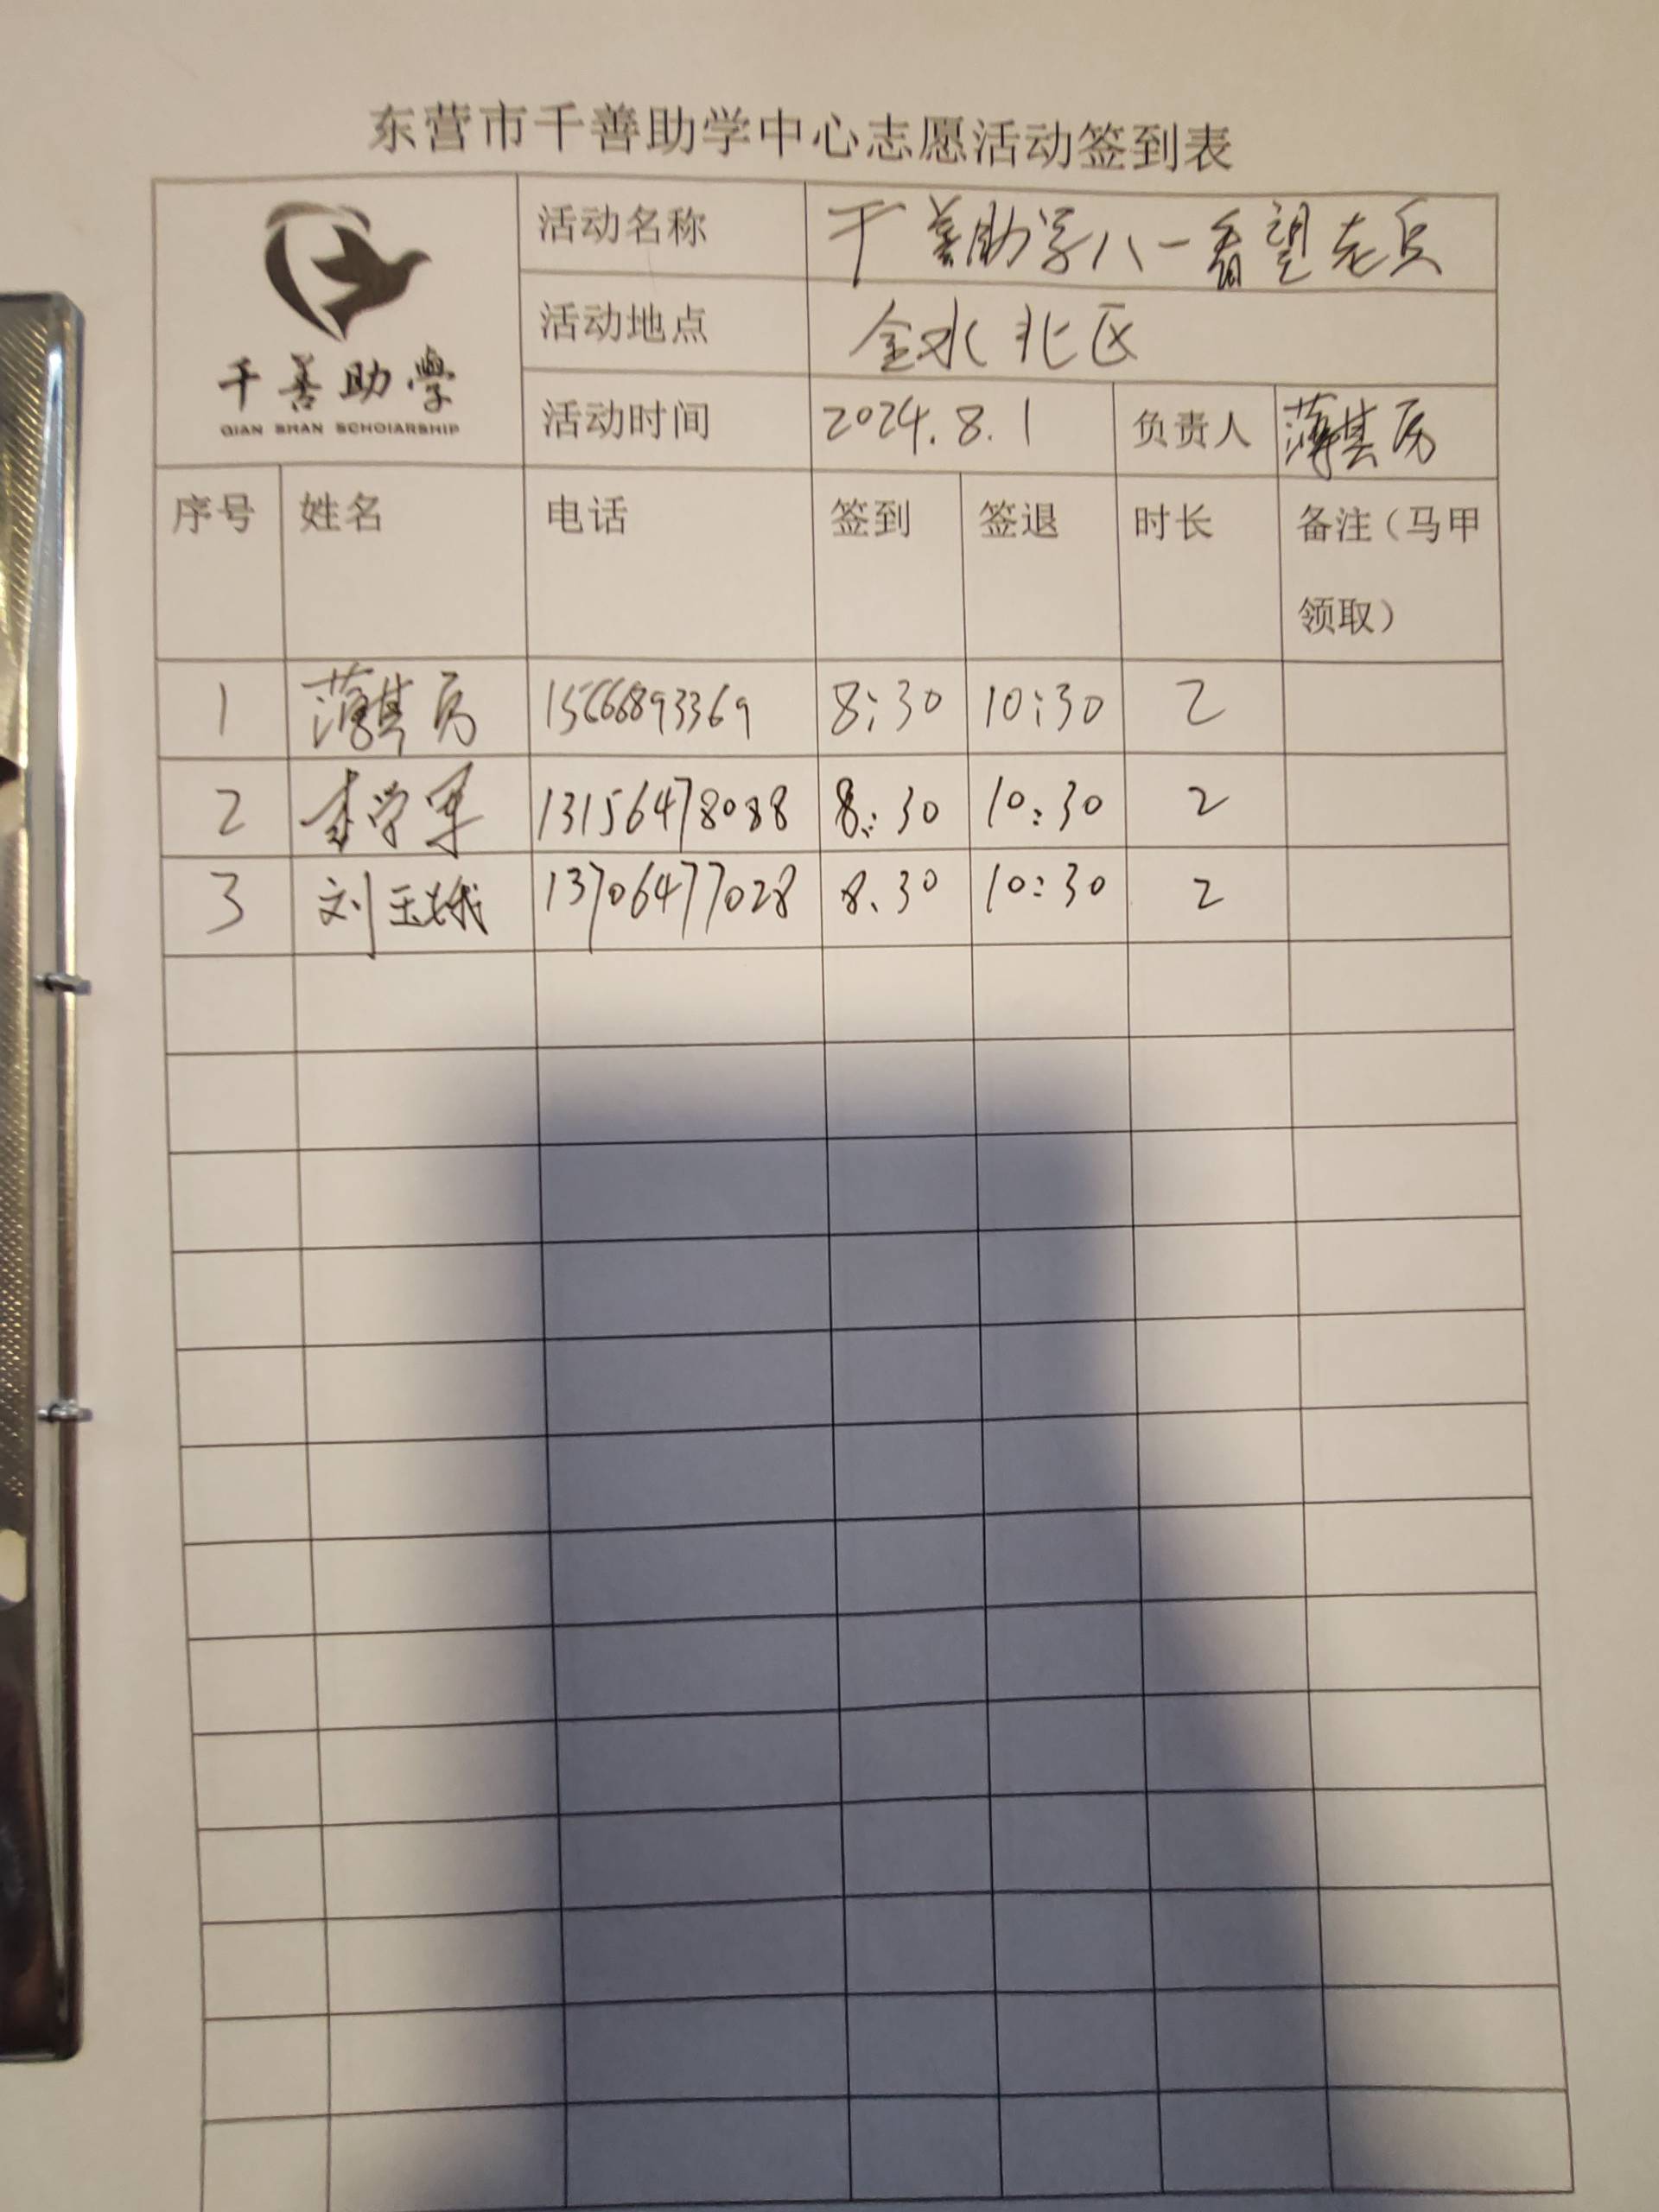 东营市千善助学中心志愿活动签到表
千善助学
QIAN SHAN SCHOLARSHIP
活动名称 千善助学八一看望老兵
活动地点 金水北区
活动时间 2024.8.1 负责人 薄其历
序号 姓名 电话 签到 签退 时长 备注（马甲
领取）
1 薄其历 15666893369 8:30 10:30 2
2 李学军 13156478088 8:30 10:30 2
3 刘玉娥 13706477028 8.30 10:30 2